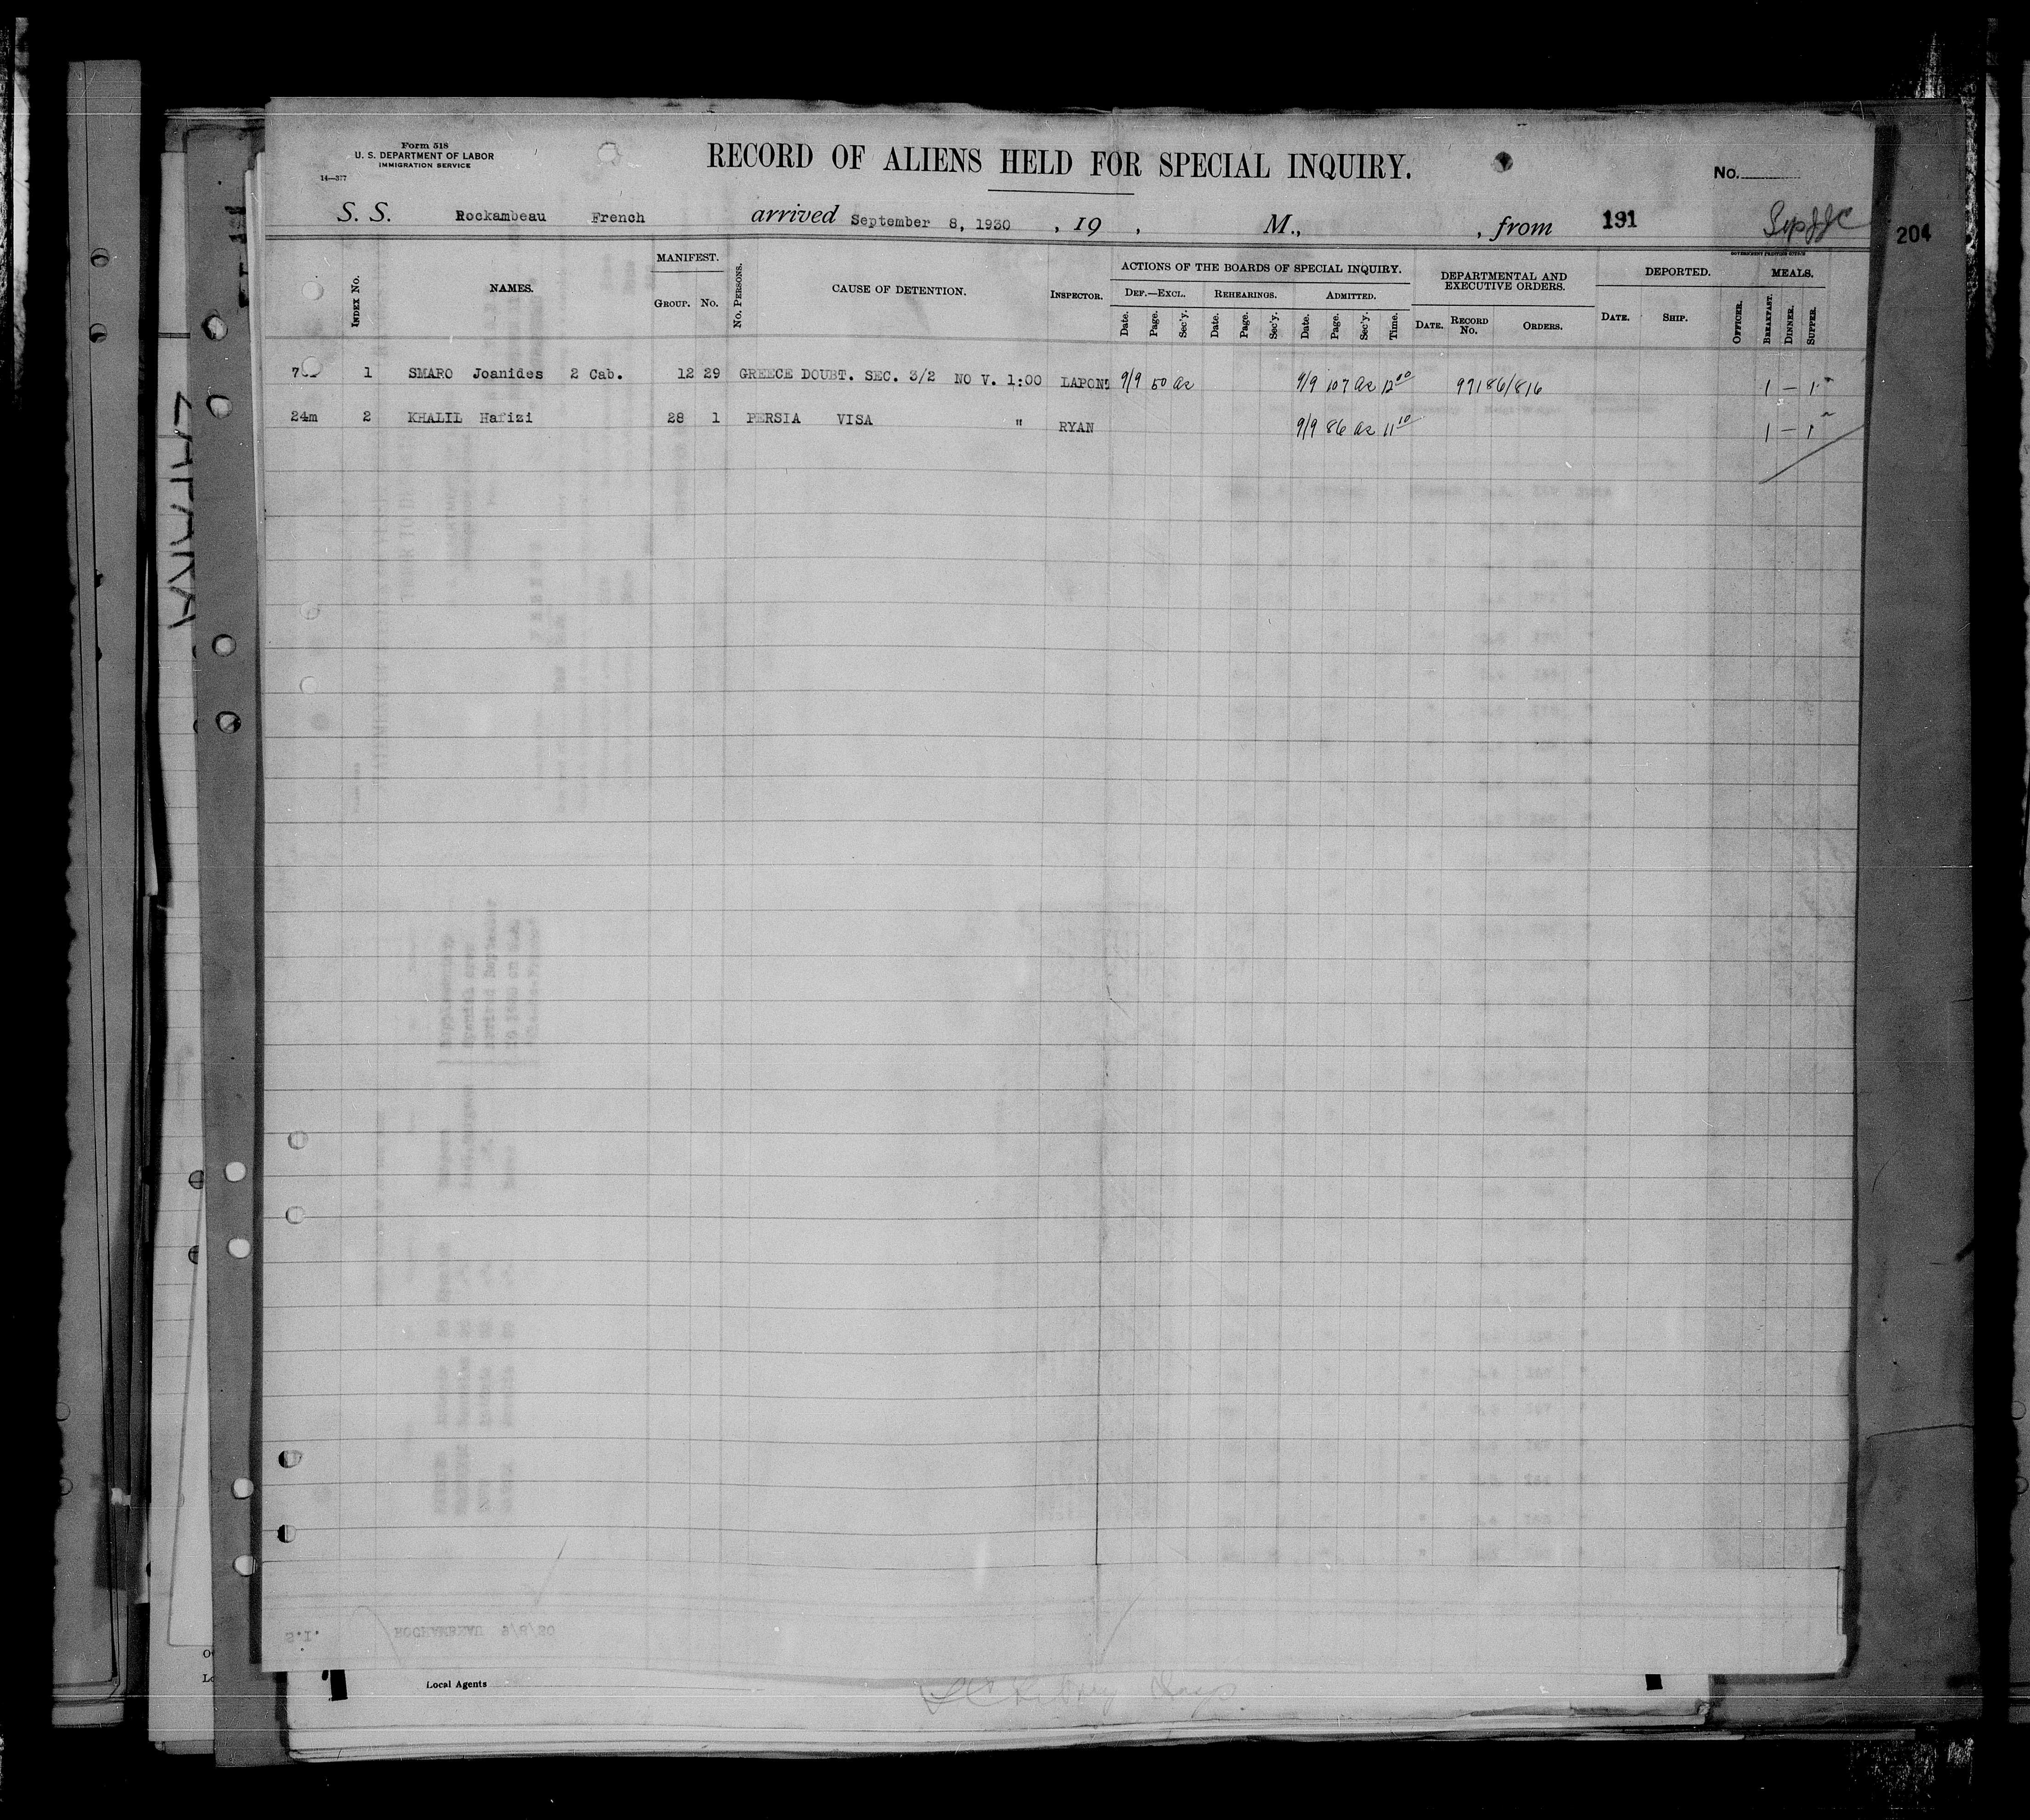 Form 518
U. S. DEPARTMENT OF LABOR
IMMIGRATION SERVICE
14—377
RECORD OF ALIENS HELD FOR SPECIAL INQUIRY.
No.
S. S. Rockambeau French arrived September 8, 1930 , 19 , M., , from 191
204
GOVERNMENT PRINTING OFFICE
INDEX No. NAMES. MANIFEST. GROUP. No. No. PERSONS. CAUSE OF DETENTION. INSPECTOR. ACTIONS OF THE BOARDS OF SPECIAL INQUIRY. DEF.—EXCL. Date. Page. Sec'y. REHEARINGS. Date. Page. Sec'y. ADMITTED. Date. Page. Sec'y. Time. DEPARTMENTAL AND EXECUTIVE ORDERS. DATE. RECORD No. ORDERS. DEPORTED. DATE. SHIP. OFFICER. MEALS. BREAKFAST. DINNER. SUPPER.
1 SMARO Joanides 2 Cab. 12 29 GREECE DOUBT. SEC. 3/2 NO V. 1:00 LAPONT 9/9 50 as 9/9 107 as 12 00 99186/816 1 — 1
24m 2 KHALIL Hafizi 28 1 PERSIA VISA " RYAN 9/9 86 as 11 10 1 — 1
S.I. ROCHAMBEAU 9/8/30
Local Agents